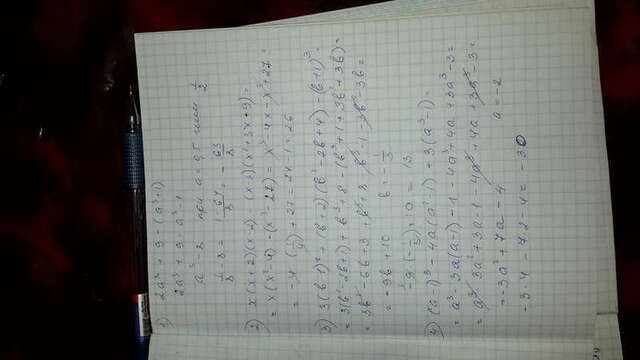 1) 2a³ + 9 - (a³+1)
2a³ + 9 - a³ - 1
a³ - 8 при a = 0,5 или 1/2
1/8 - 8 = (1 - 64)/8 = - 63/8
2) x(x+2)(x-2) - (x-3)(x²+3x+9) =
= x(x²-4) - (x³-27) = x³ - 4x - x³ + 27 =
= - 4 · (1/4) + 27 = 27 - 1 = 26
3) 3(b-1)² + (b+2)(b²-2b+4) - (b+1)³ =
= 3(b²-2b+1) + b³ + 8 - (b³+1+3b²+3b) =
= 3b² - 6b + 3 + b³ + 8 - b³ - 1 - 3b² - 3b =
= - 9b + 10 b = - 1/3
- 9 · (- 1/3) + 10 = 13
4) (a-1)³ - 4a(a²-1) + 3(a³-1) =
= a³ - 3a(a-1) - 1 - 4a³ + 4a + 3a³ - 3 =
= a³ - 3a² + 3a - 1 - 4a³ + 4a + 3a³ - 3 =
= - 3a² + 7a - 4 a = - 2
- 3 · 4 - 7 · 2 - 4 = - 30